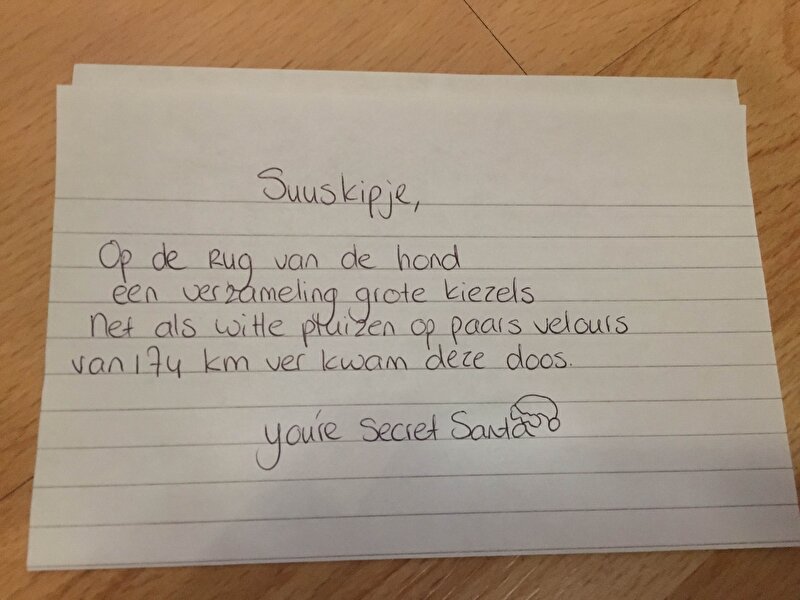 Suuskipje,
Op de Rug van de hond
een verzameling grote kiezels
Net als witte pluizen op paars velours
van 174 km ver kwam deze doos.
you're Secret Santa